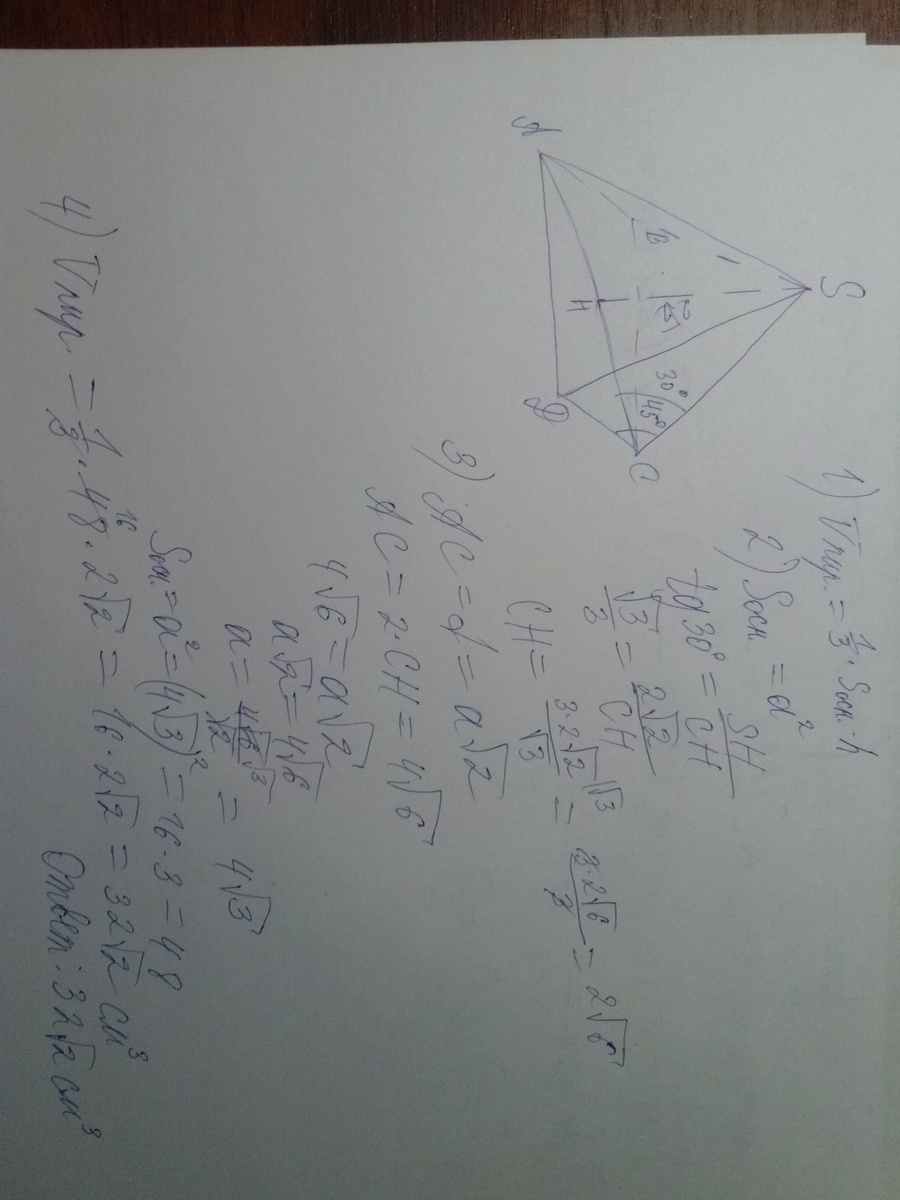 S
A
B
H
D
C
30°
45°
1) Vпир. = 1/3 · Sосн. · h
2) Sосн. = a²
tg 30° = SH/CH
√3/3 = 2√2/CH
CH = 3·2√2/√3 |√3 = 3·2√6/3 = 2√6
3) AC = d = a√2
AC = 2·CH = 4√6
4√6 = a√2
a√2 = 4√6
a = 4√6/√2 √3 = 4√3
Sосн. = a² = (4√3)² = 16·3 = 48
4) Vпир. = 1/3 · 48 16 · 2√2 = 16·2√2 = 32√2 см³
Ответ: 32√2 см³